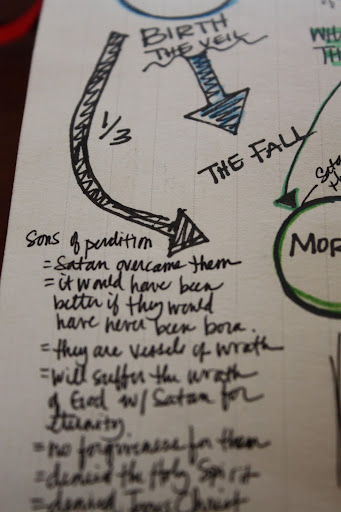 BIRTH
THE VEIL
1/3
THE FALL
Sons of perdition
= Satan overcame them
= it would have been
better if they would
have never been born.
= they are vessels of wrath
= will suffer the wrath
of God w/ Satan for
eternity
= no forgiveness for them
= denied the Holy Spirit
= denied Jesus Christ
MOR